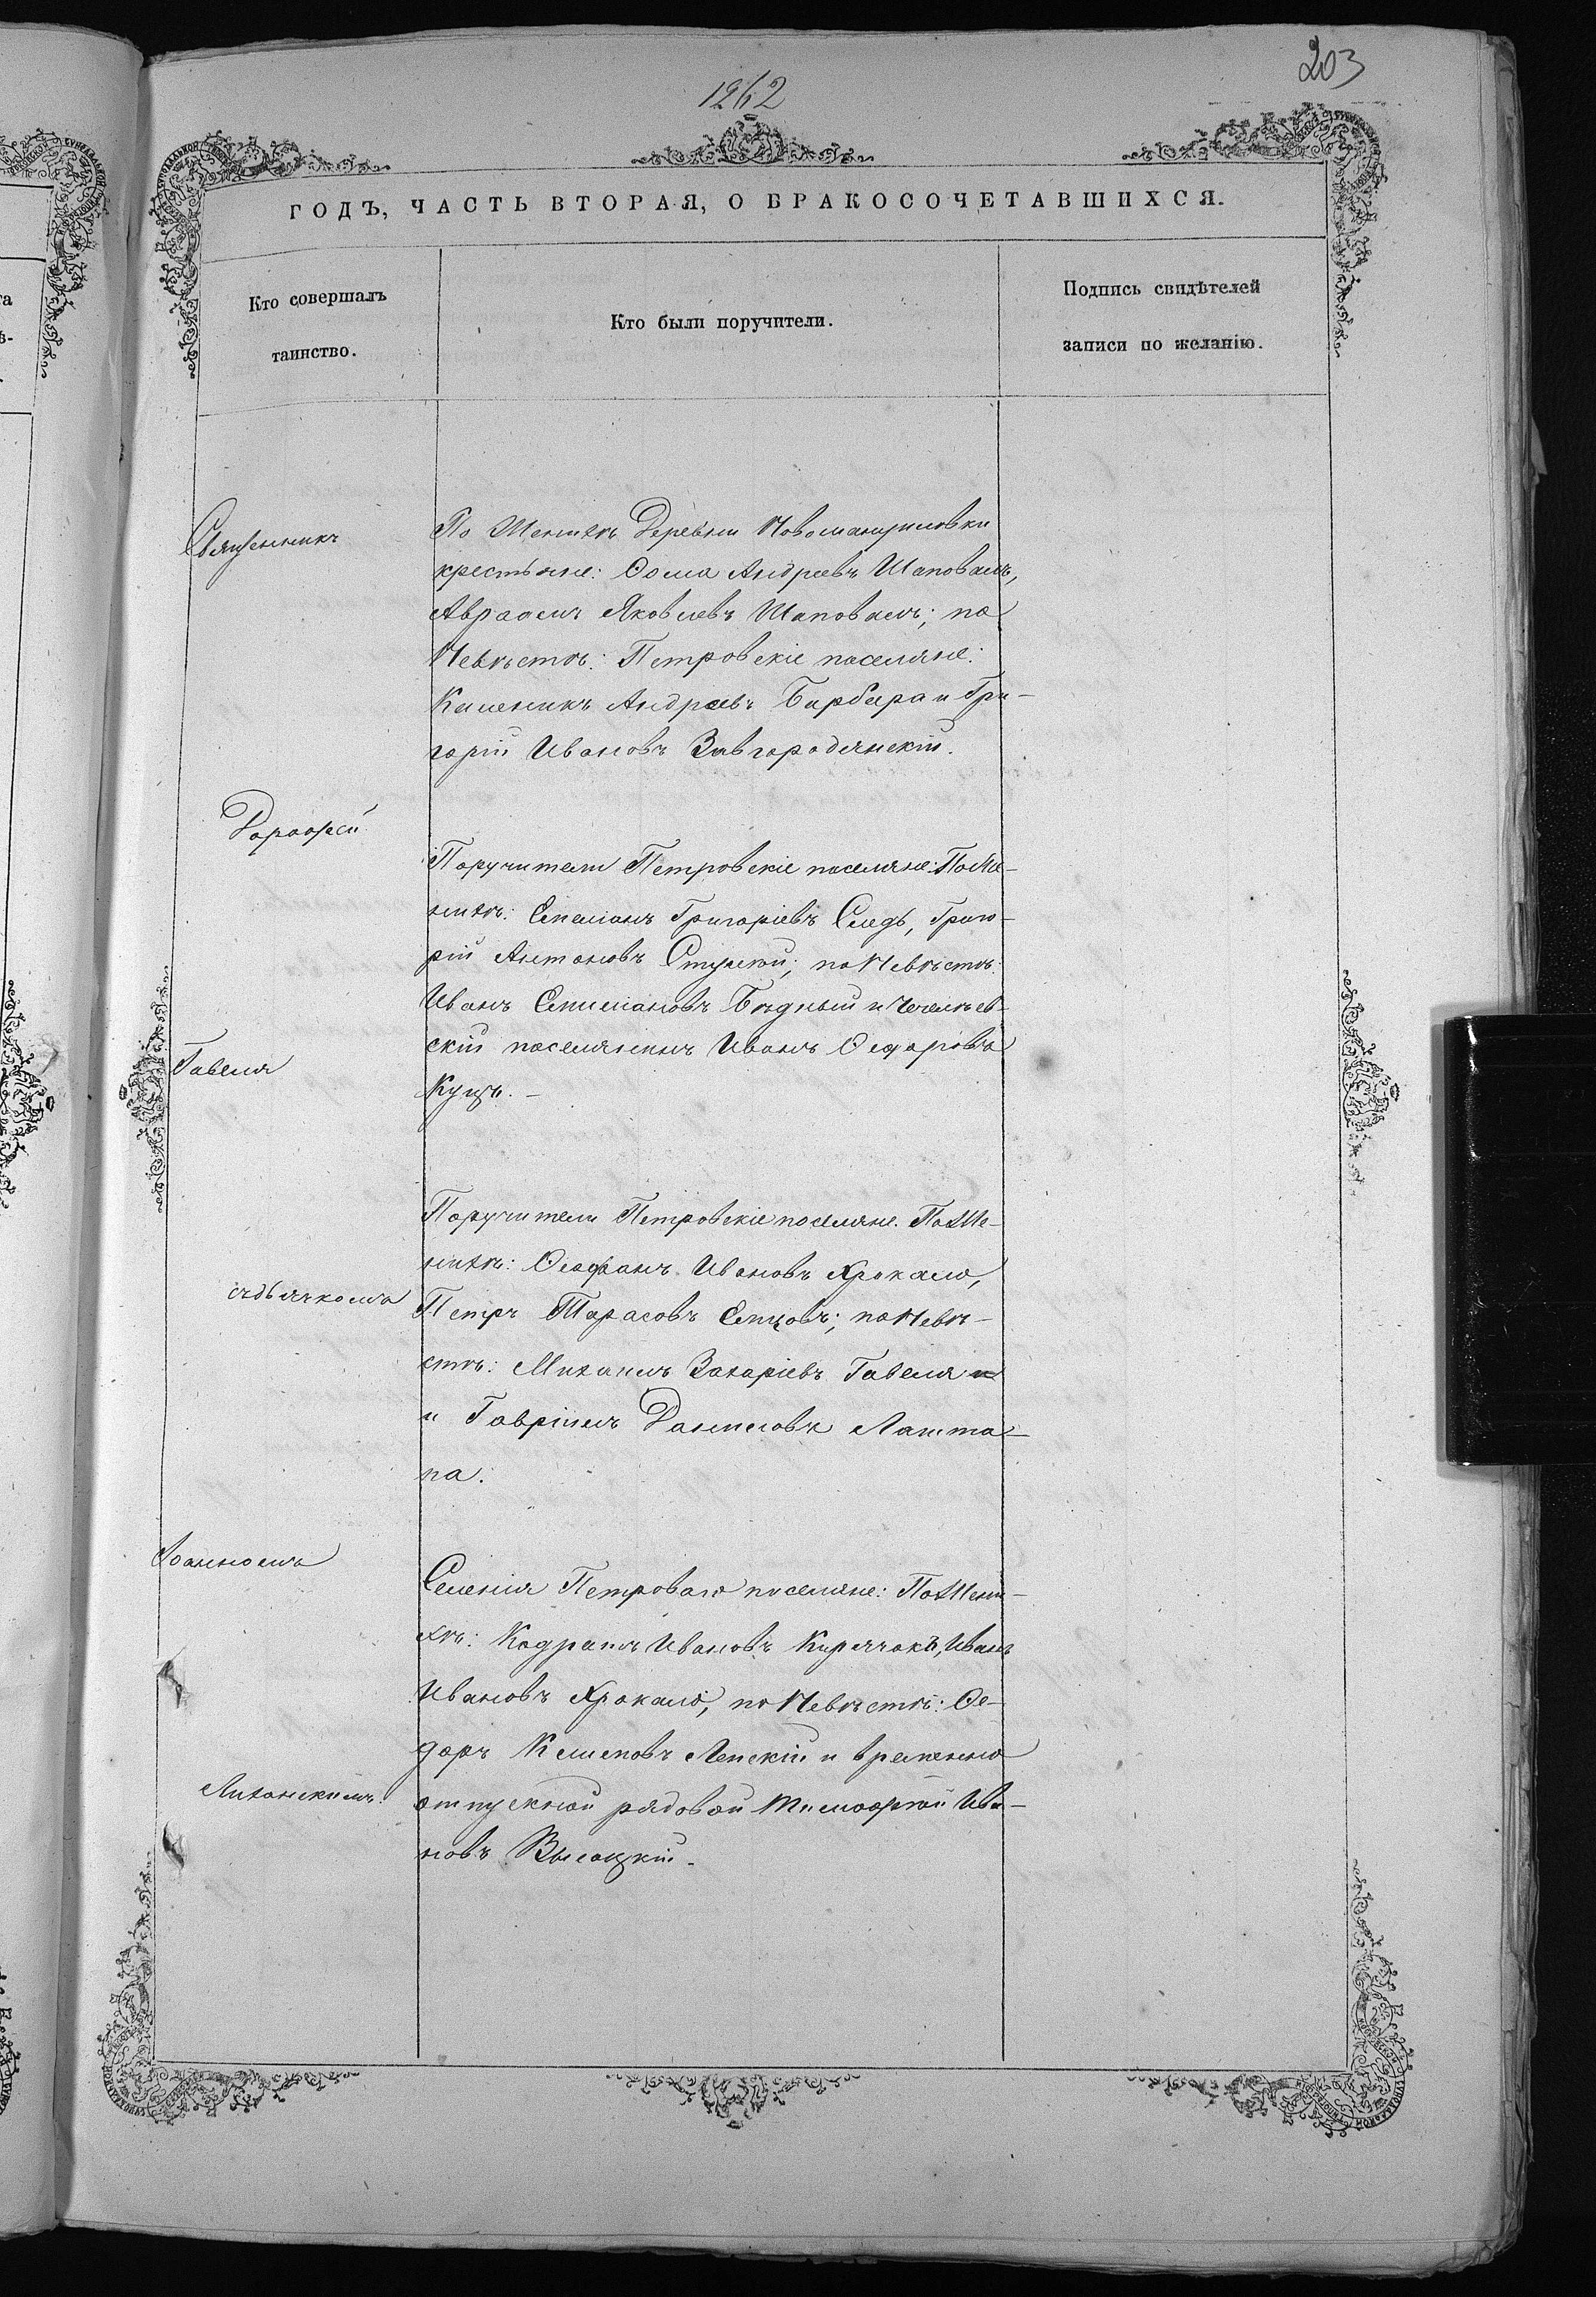 1262
203
ГОДЪ, ЧАСТЬ ВТОРАЯ, О БРАКОСОЧЕТАВШИХСЯ.
Кто совершалъ
таинство.
Кто были поручители.
Подпись свидѣтелей
записи по желанію.
Священникъ
Дороѳей
Гавеля
съ дьячкомъ
Іоанномъ
Лиханскимъ.
По Женихѣ деревни Новомануиловки
крестьяне: Ѳома Андреевъ Шаповалъ,
Авраамъ Яковлевъ Шаповалъ; по
Невѣстѣ: Петровскіе поселяне:
Климентъ Андреевъ Барбара и Гри-
горій Ивановъ Завгородянскій.
Поручители Петровскіе поселяне: По Же-
нихѣ: Емеліанъ Григоріевъ Следь, Григо-
рій Антоновъ; по Невѣстѣ:
Иванъ Емиліановъ Бѣдный и
скій поселянинъ Иванъ Ѳедоровъ
Куцъ. -
Поручители Петровскіе поселяне. По Же-
нихѣ: Ѳеофанъ Ивановъ Хрокало,
Петръ Тарасовъ; по Невѣ-
стѣ: Михаилъ Захаріевъ Гавеля
и Гавріилъ Даниловъ Лашта-
па.
Селенія Петроваго поселяне: По Жени-
хѣ: Кодратъ Ивановъ Кирячокъ, Иванъ
Ивановъ Хрокало, по Невѣстѣ: Ѳе-
доръ Климовъ Ленскій и временно
отпускной рядовой Тимоѳей Ива-
новъ Высоцкій.